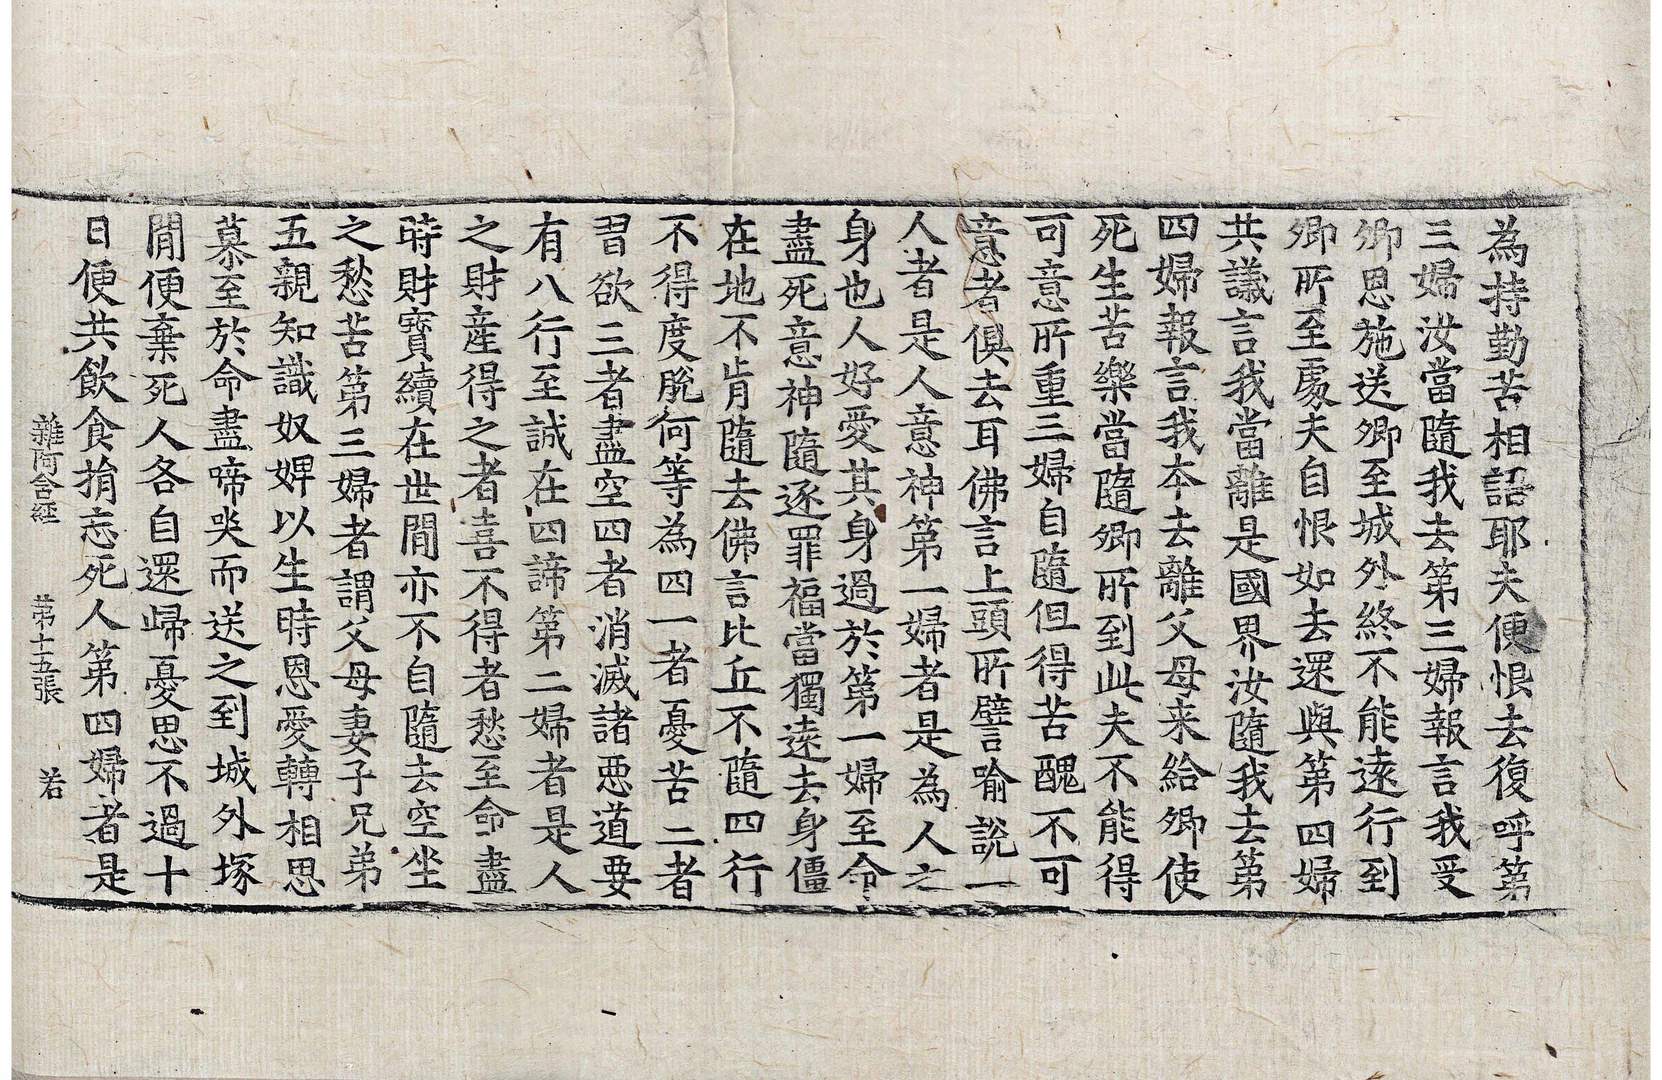 為持勤苦相語耶夫便恨去復呼第
三婦汝當隨我去第三婦報言我受
卿恩施送卿至城外終不能遠行到
卿所至處夫自恨如去還與第四婦
共議言我當離是國界汝隨我去第
四婦報言我本去離父母来給卿使
死生苦樂當隨卿所到此夫不能得
可意所重三婦自隨但得苦醜不可
意者俱去耳佛言上頭所譬喻說一
人者是人意神第一婦者是為人之
身也人好愛其身過於第一婦至命
盡死意神隨逐罪福當獨遠去身僵
在地不肯隨去佛言比丘不隨四行
不得度脫何等為四一者憂苦二者
習欲三者盡空四者消滅諸惡道要
有八行至誠在四諦第二婦者是人
之財産得之者喜不得者愁至命盡
時財寶續在世間亦不自隨去空坐
之愁苦第三婦者謂父母妻子兄弟
五親知識奴婢以生時恩愛轉相思
慕至於命盡啼哭而送之到城外塚
間便棄死人各自還歸憂思不過十
日便共飲食捐忘死人第四婦者是
雜阿含經 第十五張 若